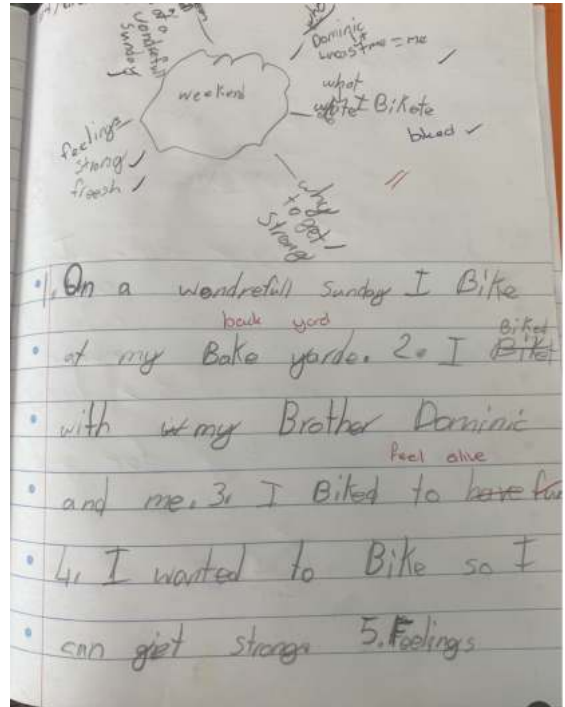 at a
wondrefull
sunday
Dominic
me
what
I Bikete
biked
weekend
feelings
strong
freesh
why
to get
strong
1. On a wondrefull sunday I Bike
back yard
Biked
at my Bake yarde. 2. I
with my Brother Dominic
feel alive
and me. 3. I Biked to have fun
4. I wanted to Bike so I
can giet strong. 5. Feelings